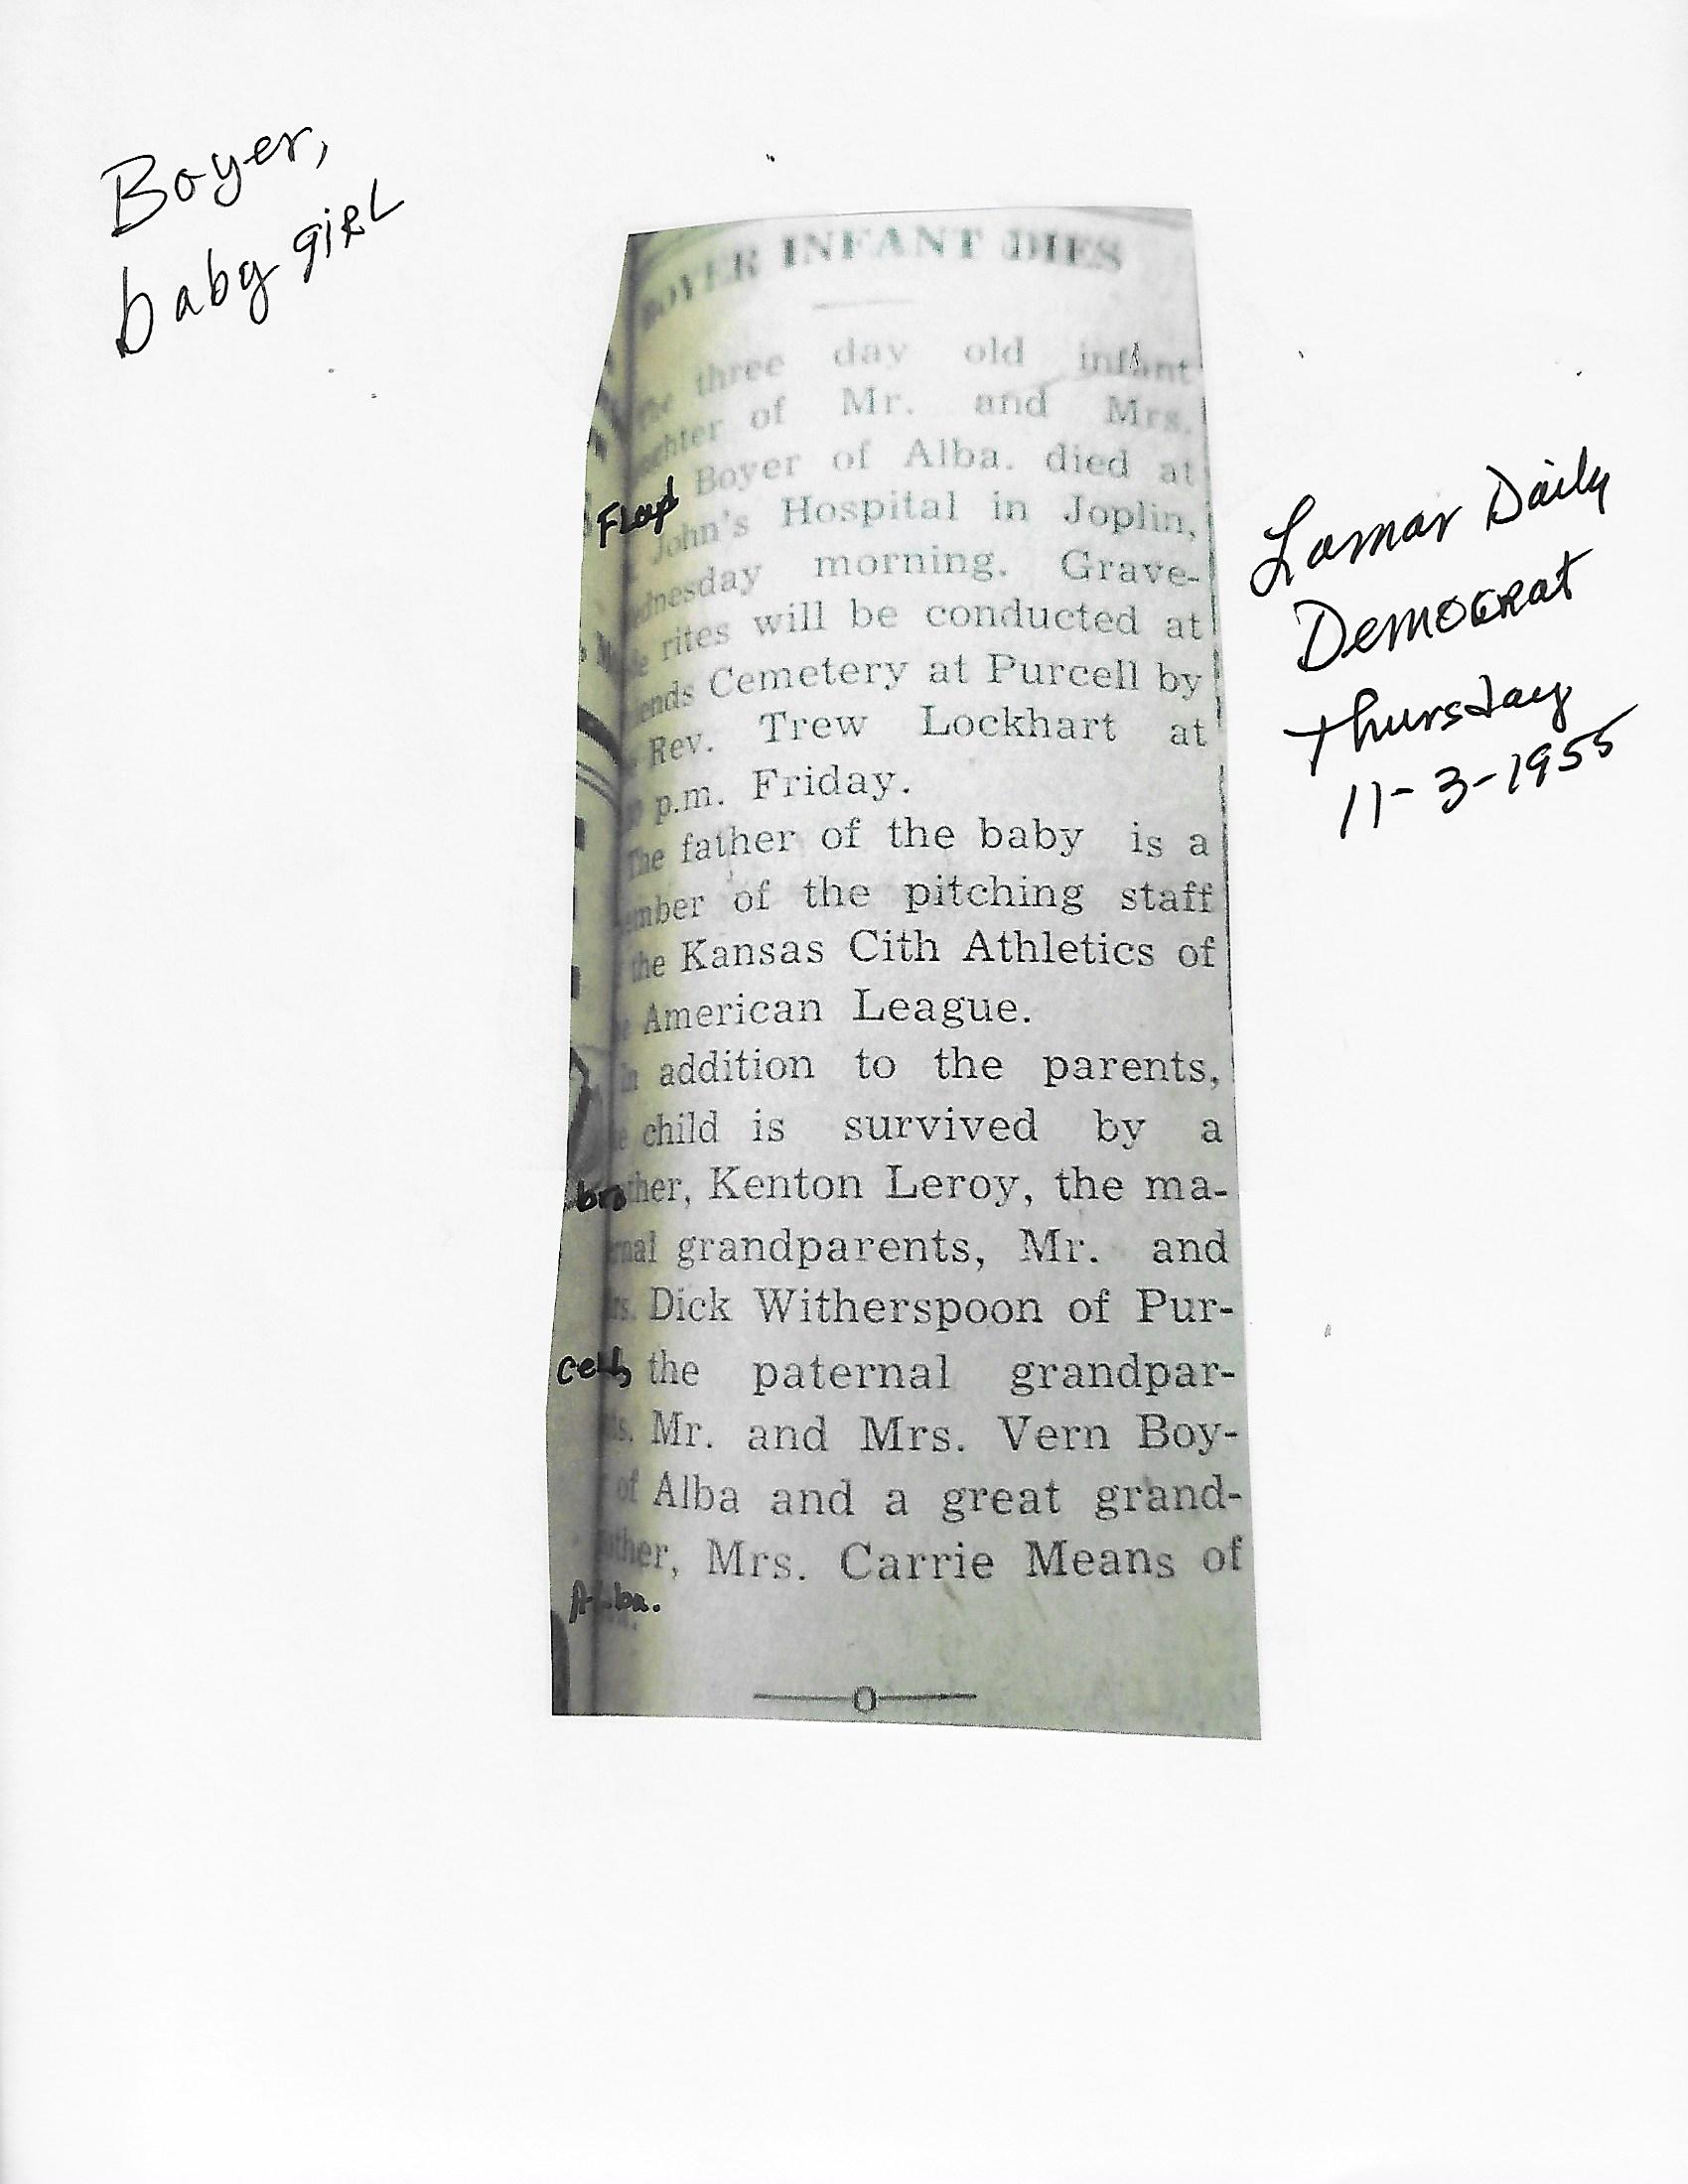 Boyer,
baby girl
BOYER INFANT DIES
The three day old infant
aughter of Mr. and Mrs.
Floyd Boyer of Alba. died at
. John's Hospital in Joplin,
ednesday morning. Grave-
de rites will be conducted at
iends Cemetery at Purcell by
Rev. Trew Lockhart at
p.m. Friday.
The father of the baby is a
ember of the pitching staff
the Kansas Cith Athletics of
e American League.
In addition to the parents,
e child is survived by a
brother, Kenton Leroy, the ma-
rnal grandparents, Mr. and
rs. Dick Witherspoon of Pur-
cell, the paternal grandpar-
ts. Mr. and Mrs. Vern Boy-
of Alba and a great grand-
other, Mrs. Carrie Means of
Alba.
O
Lamar Daily
Democrat
Thursday
11-3-1955